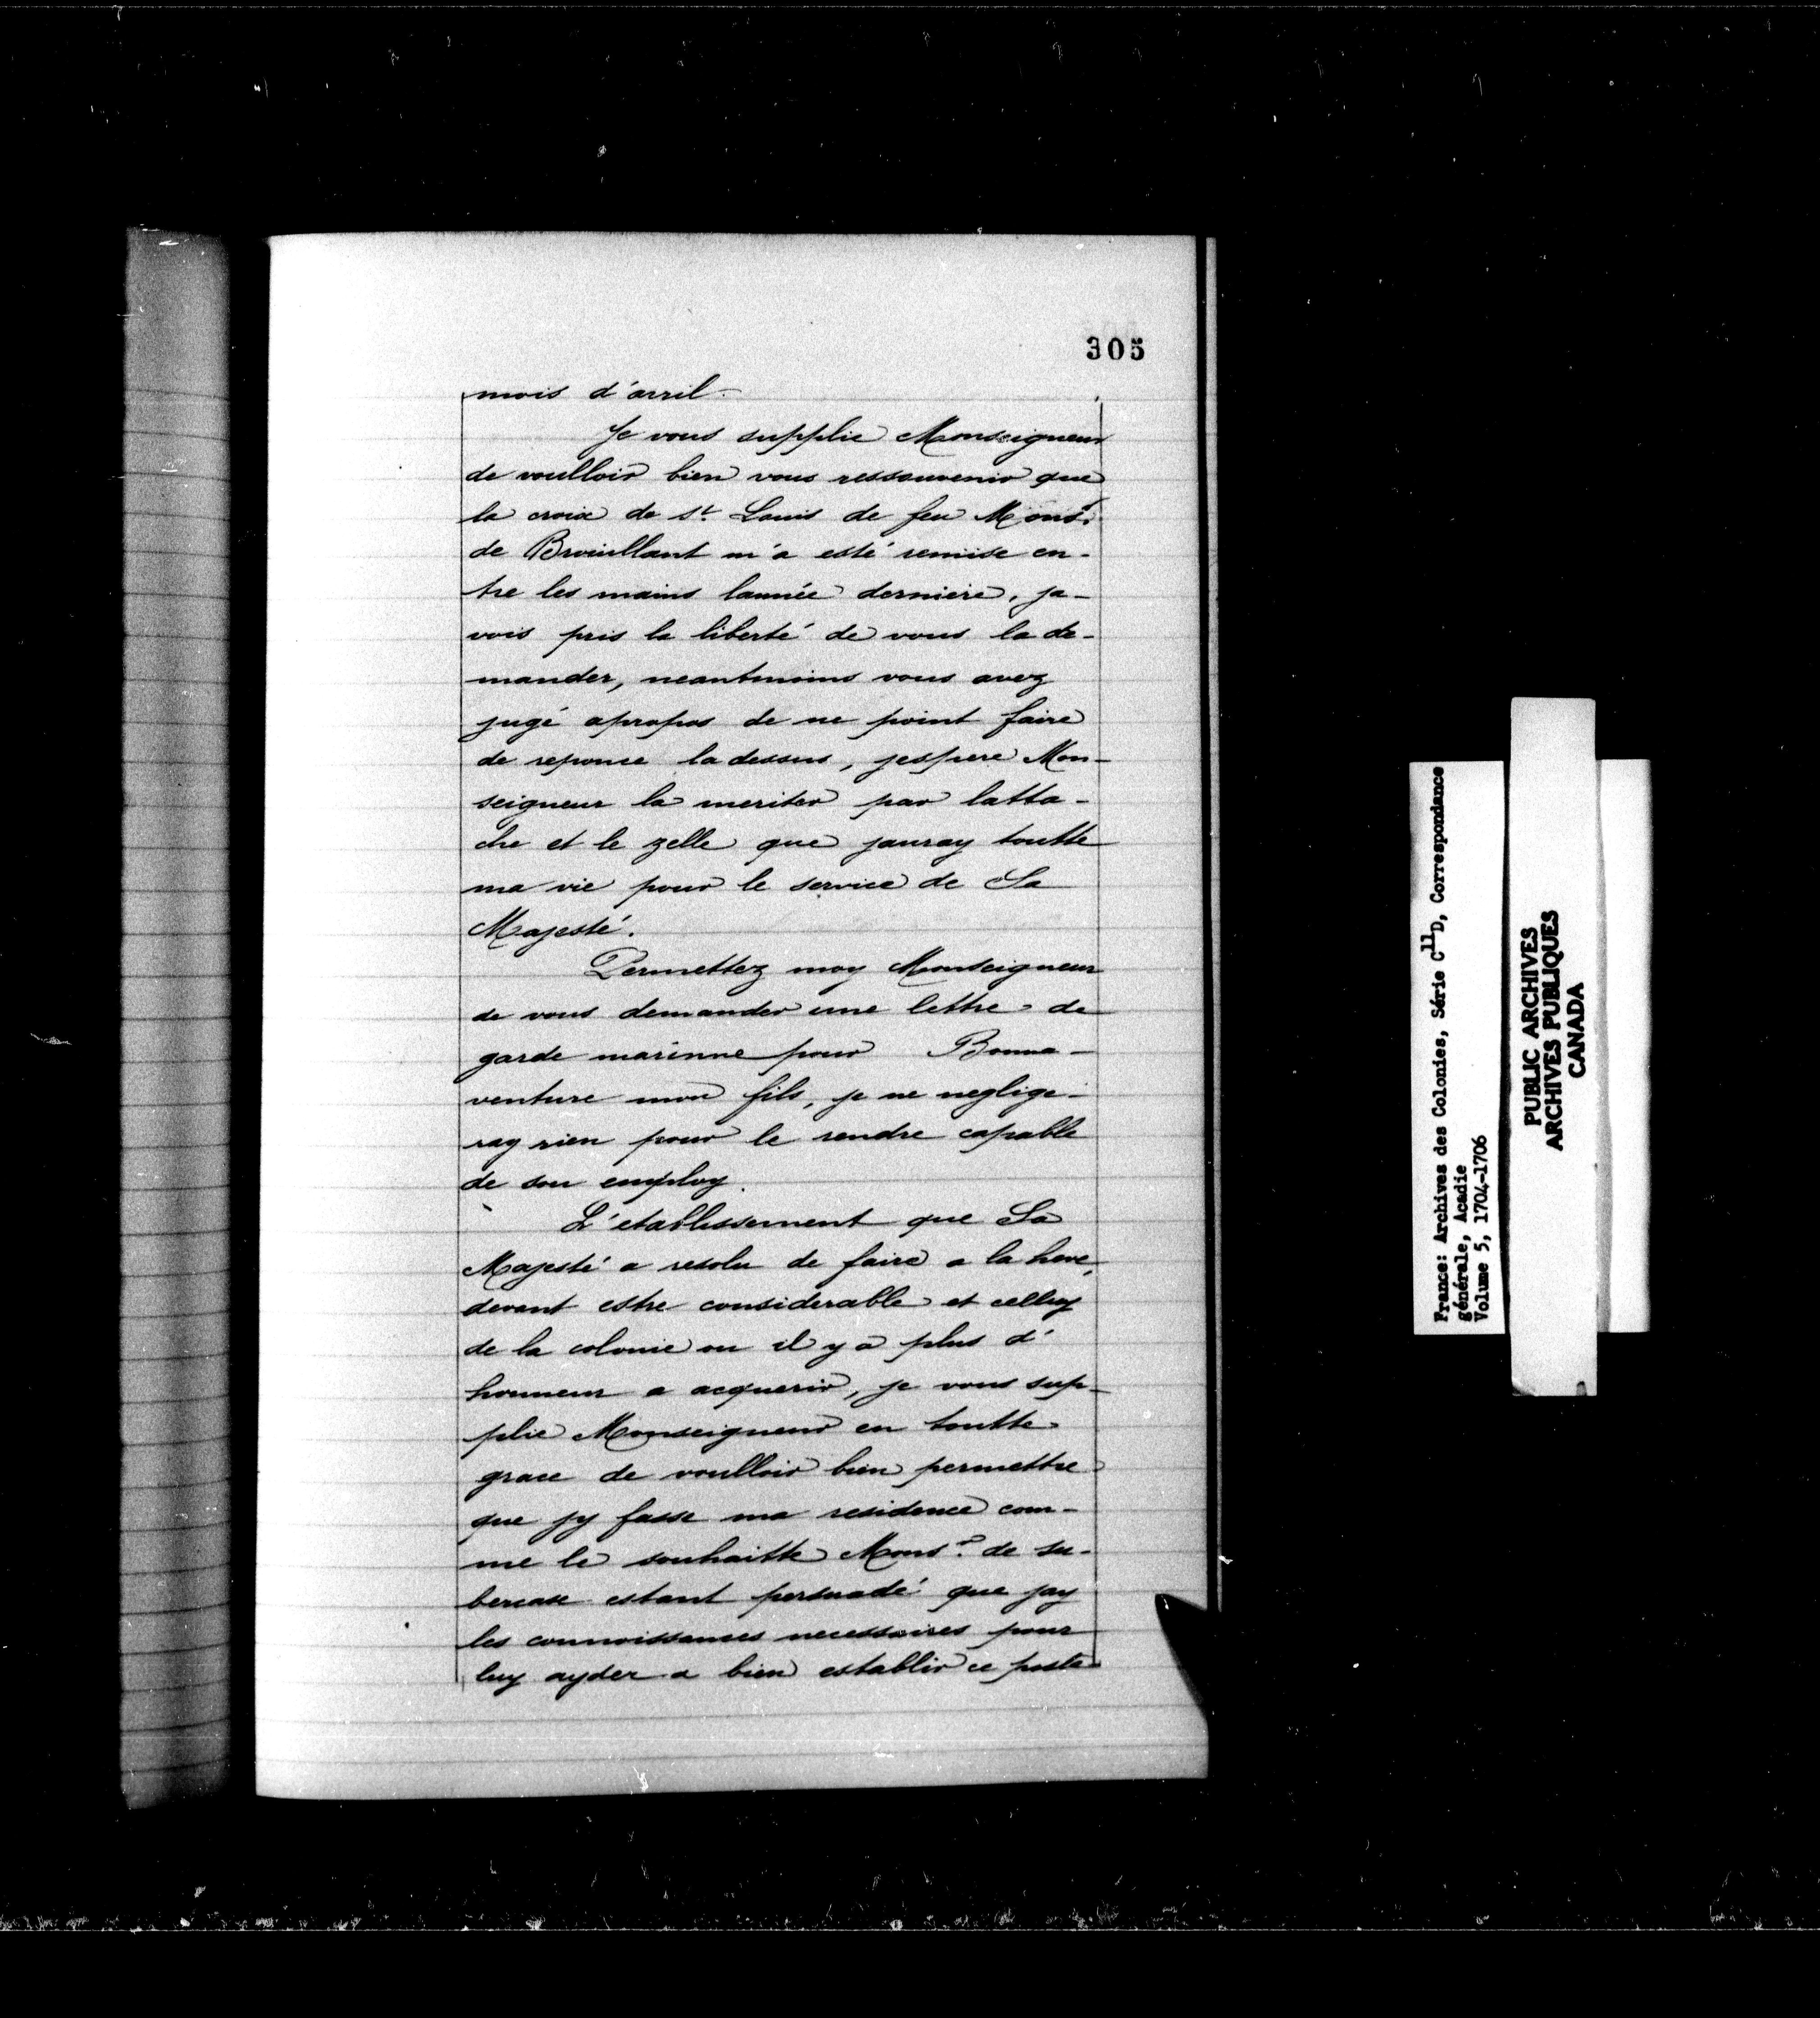 305
mois d'avril.
Je vous supplie Monseigneur
de voulloir bien vous ressouvenir que
la croix de St. Louis de feu Monsr.
de Brouillant m'a esté remise en-
tre les mains lannée derniere, ja-
vois pris la liberté de vous la de-
mander, neantmoins vous avez
jugé apropos de ne point faire
de reponce la dessus, jespere Mon-
seigneur la meriter par latta-
che et le zelle que jauray toutte
ma vie pour le service de Sa
Majesté.
Permettez moy Monseigneur
de vous demander une lettre de
garde marinne pour Bonna-
venture mon fils, je ne neglige-
ray rien pour le rendre capable
de son employ.
L'etablissement que Sa
Majesté a resolu de faire a la heve,
devant estre considerable et celluy
de la colonie ou il y a plus d'
honneur a acquerir, je vous sup-
plie Monseigneur en toutte
grace de voulloir bien permettre
que jy fasse ma residence com-
me le souhaitte Monsr. de Su-
bercase estant persuadé que jay
les connoissances necessaires pour
luy ayder a bien establir ce poste
France: Archives des Colonies, Série C11D, Correspondance
générale, Acadie
Volume 5, 1704-1706
PUBLIC ARCHIVES
ARCHIVES PUBLIQUES
CANADA